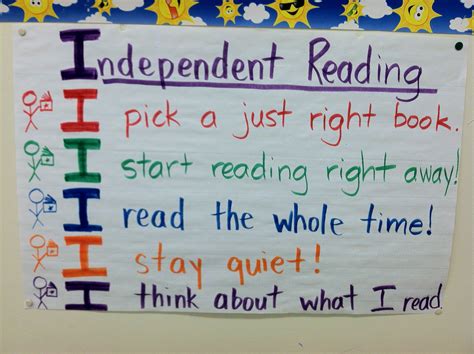 Independent Reading
I pick a just right book.
I start reading right away!
I read the whole time!
I stay quiet!
I think about what I read.